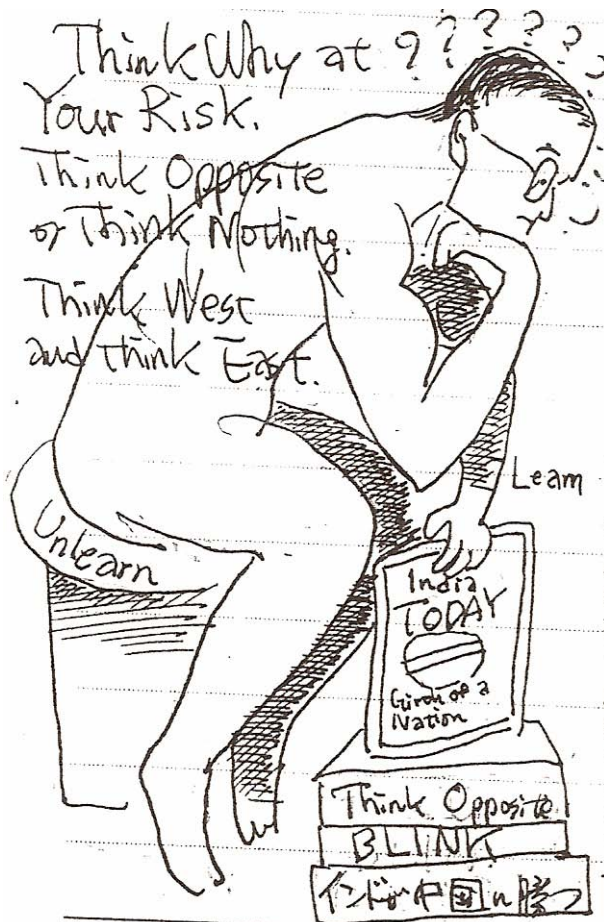 Think Why at ? ? ? ? ? ?
Your Risk.
Think Opposite
or Think Nothing.
Think West
and think East.
Learn
Unlearn
India
TODAY
of a
Nation
Think Opposite
BLINK
インドが中国に勝つ